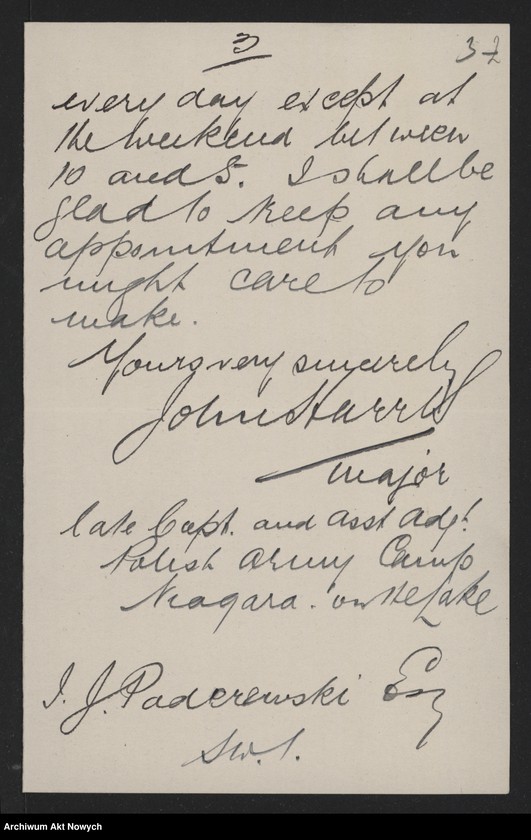 3
37
every day except at
the weekend between
10 and 5. I shall be
glad to keep any
appointment you
might care to
make.
Yours very sincerely
John Harris
Major
late Capt. and asst Adgt.
Polish Army Camp
Niagara. on the Lake
I. J. Paderewski Esq
S.W.1.
Archiwum Akt Nowych